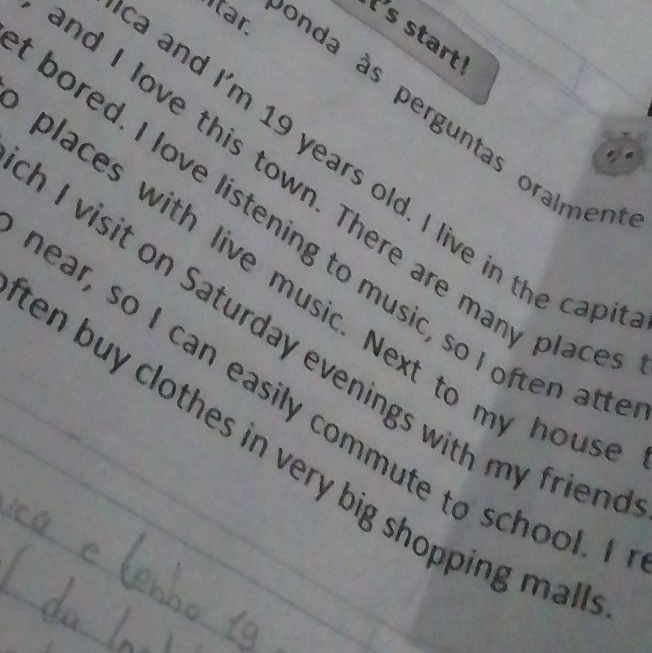 start!
às perguntas oralmente
and I'm 19 years old. I live in the
, and I love this town. There are many places
bored. I love listening to music, so I often
places with live music. Next to my house
I visit on Saturday evenings with my friends.
near, so I can easily commute to school. I
often buy clothes in very big shopping malls.
e tenho 19
da